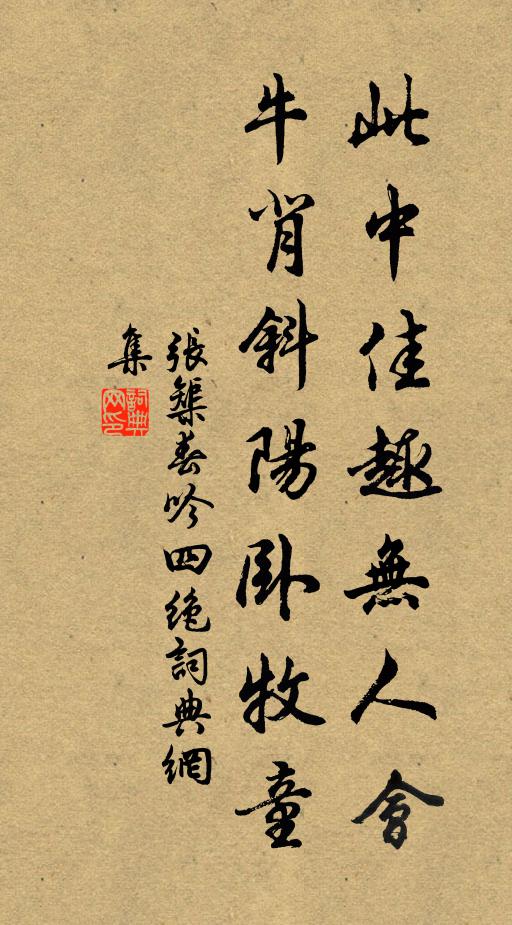 此中佳趣無人會
牛背斜陽臥牧童
張榘春吟四絶詞典網
集
詞典網印